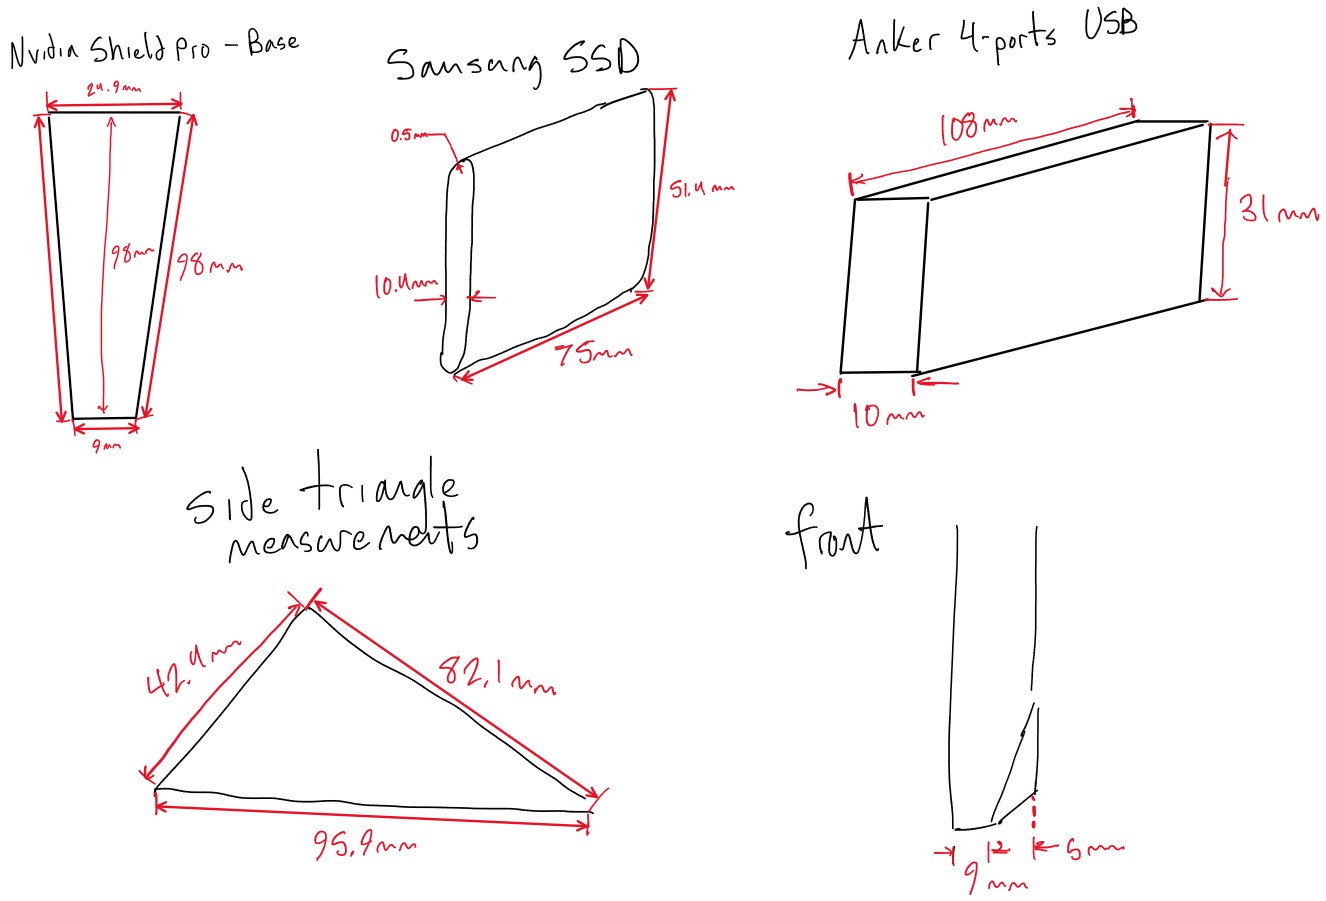 Nvidia Shield Pro - Base
24.9mm
98mm
98mm
9mm
Samsung SSD
0.5mm
51.4mm
10.4mm
75mm
Anker 4-ports USB
108mm
31mm
10mm
side triangle
measurements
42.4mm
82.1mm
95.9mm
front
9mm